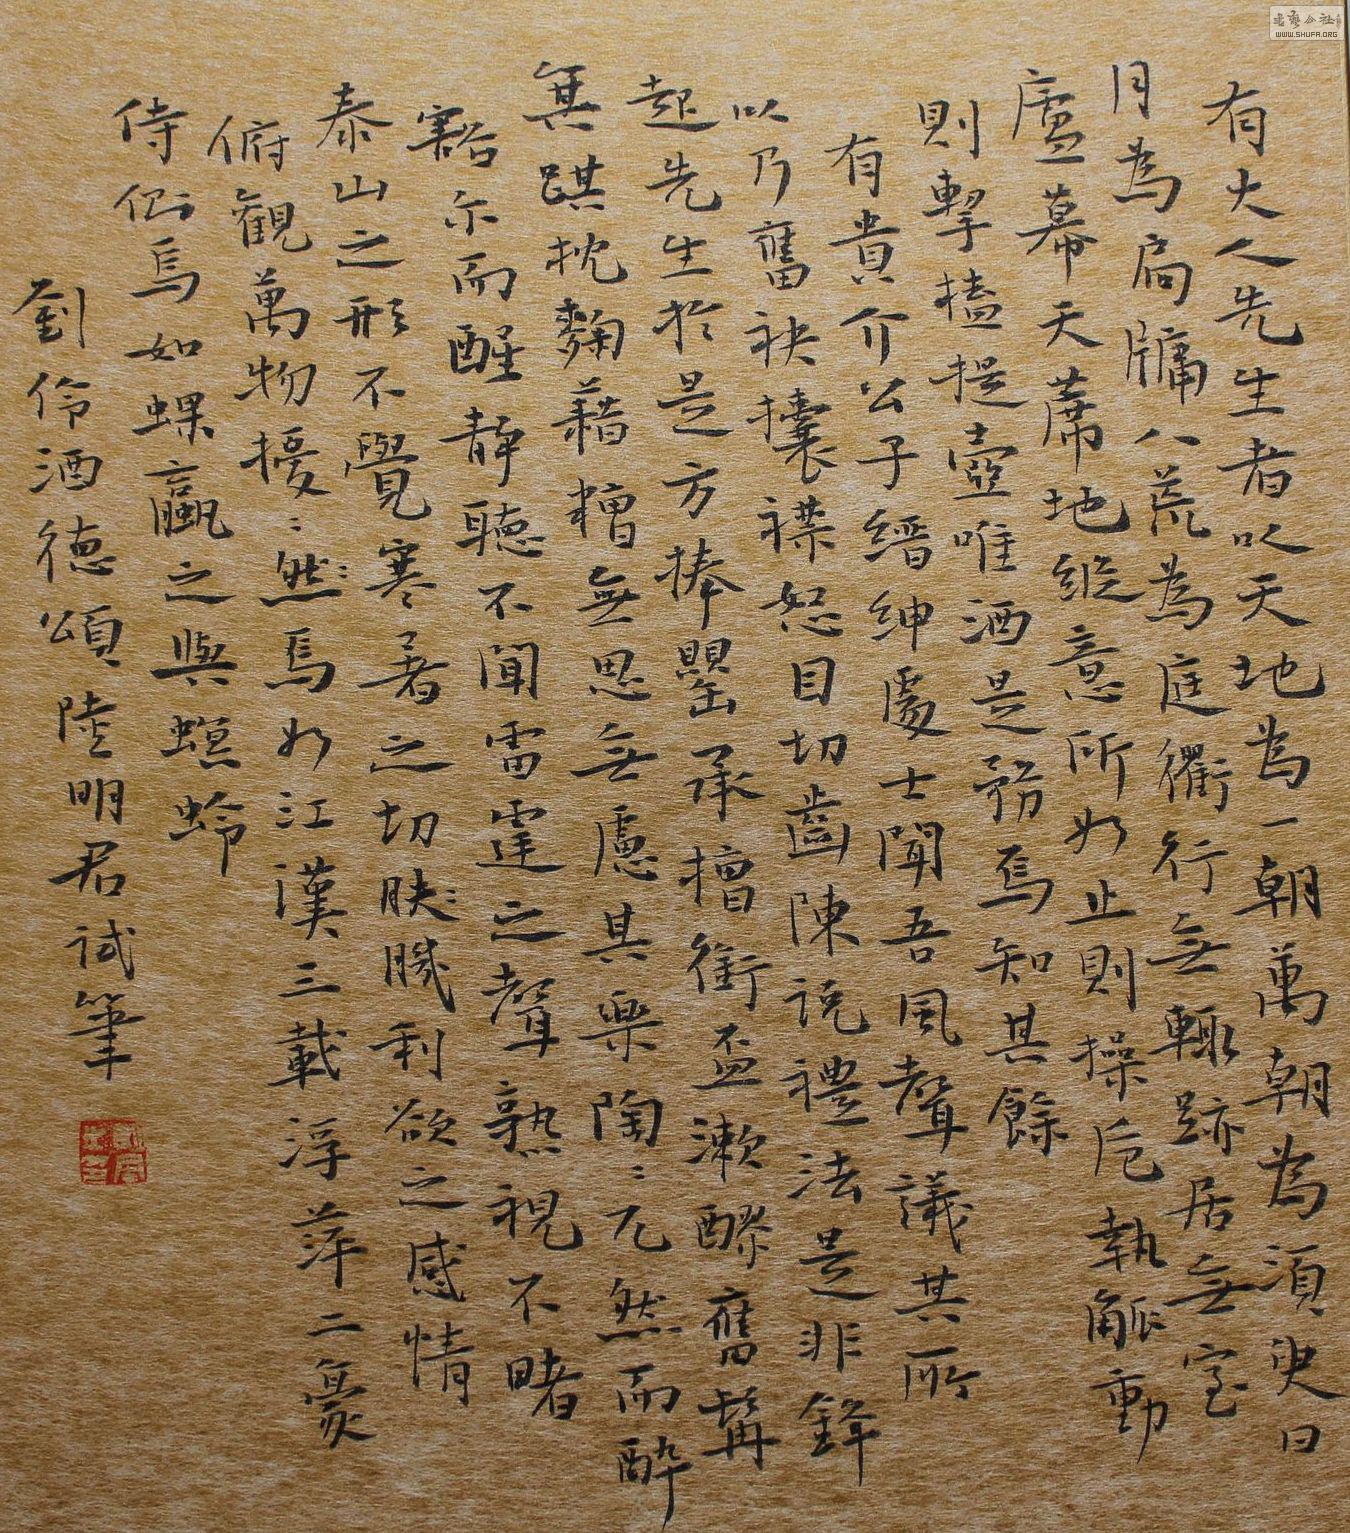 有大人先生者以天地為一朝萬朝為須臾日
月為扃牖八荒為庭衢行無轍跡居無室
廬幕天席地縱意所如止則操卮執觚動
則擊榼提壺唯酒是務焉知其餘
有貴介公子縉紳處士聞吾風聲議其所
以乃奮袂攘襟怒目切齒陳說禮法是非鋒
起先生於是方捧罌承槽銜盃漱醪奮髯
箕踑枕麴藉糟無思無慮其樂陶〻兀然而醉
豁尔而醒靜聽不聞雷霆之聲熟視不睹
泰山之形不覺寒暑之切肌利欲之感情
俯觀萬物擾〻然焉如江漢三載浮萍二豪
侍側焉如蜾蠃之與螟蛉
劉伶酒德頌 陸明君試筆
WWW.SHUFA.ORG